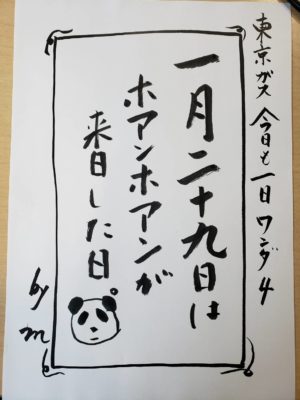 東京ガス 今日も一日ワンダ4
一月二十九日は
ホアンホアンが
来日した日。
by m